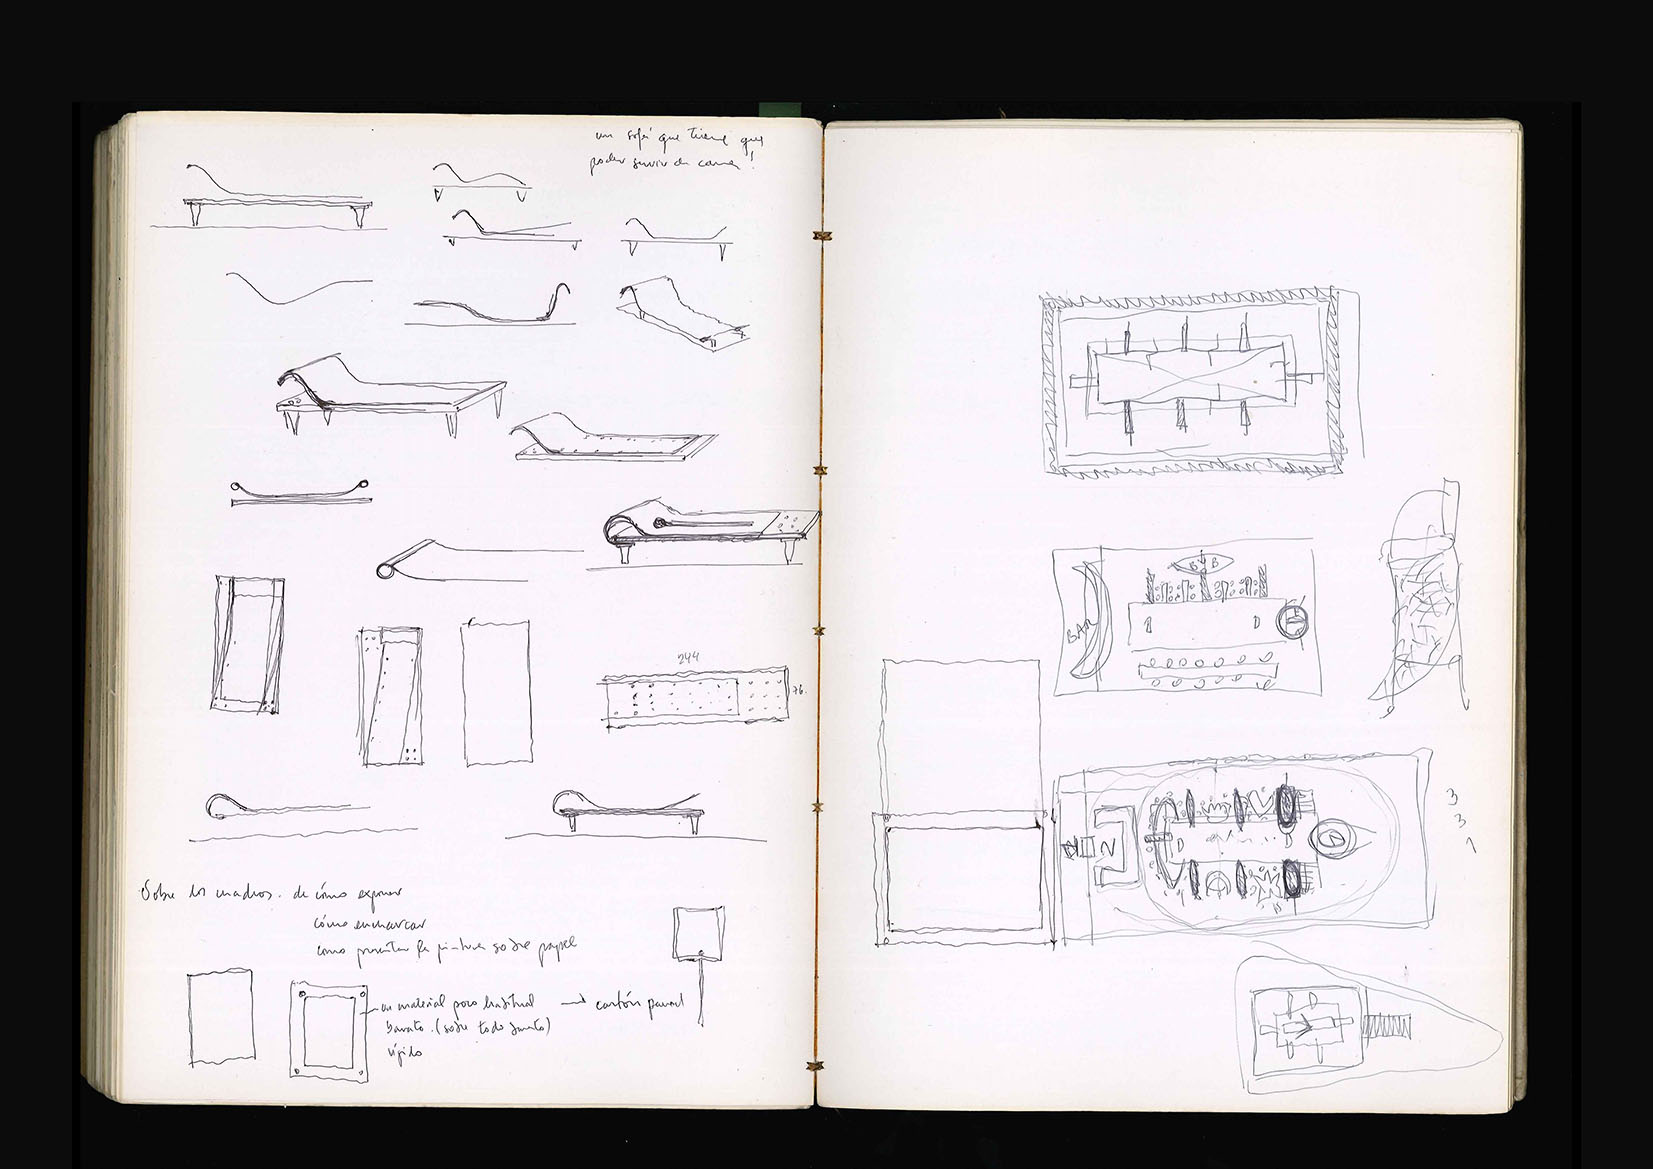 un sofá que tiene que
poder servir de cama!
244
76.
Sobre los cuadros. de cómo exponer
cómo enmarcar
como presentar la pintura sobre papel
un material poco habitual → cartón panel
barato. (sobre todo junto)
rígido
B B
BAR
2
3
3
1